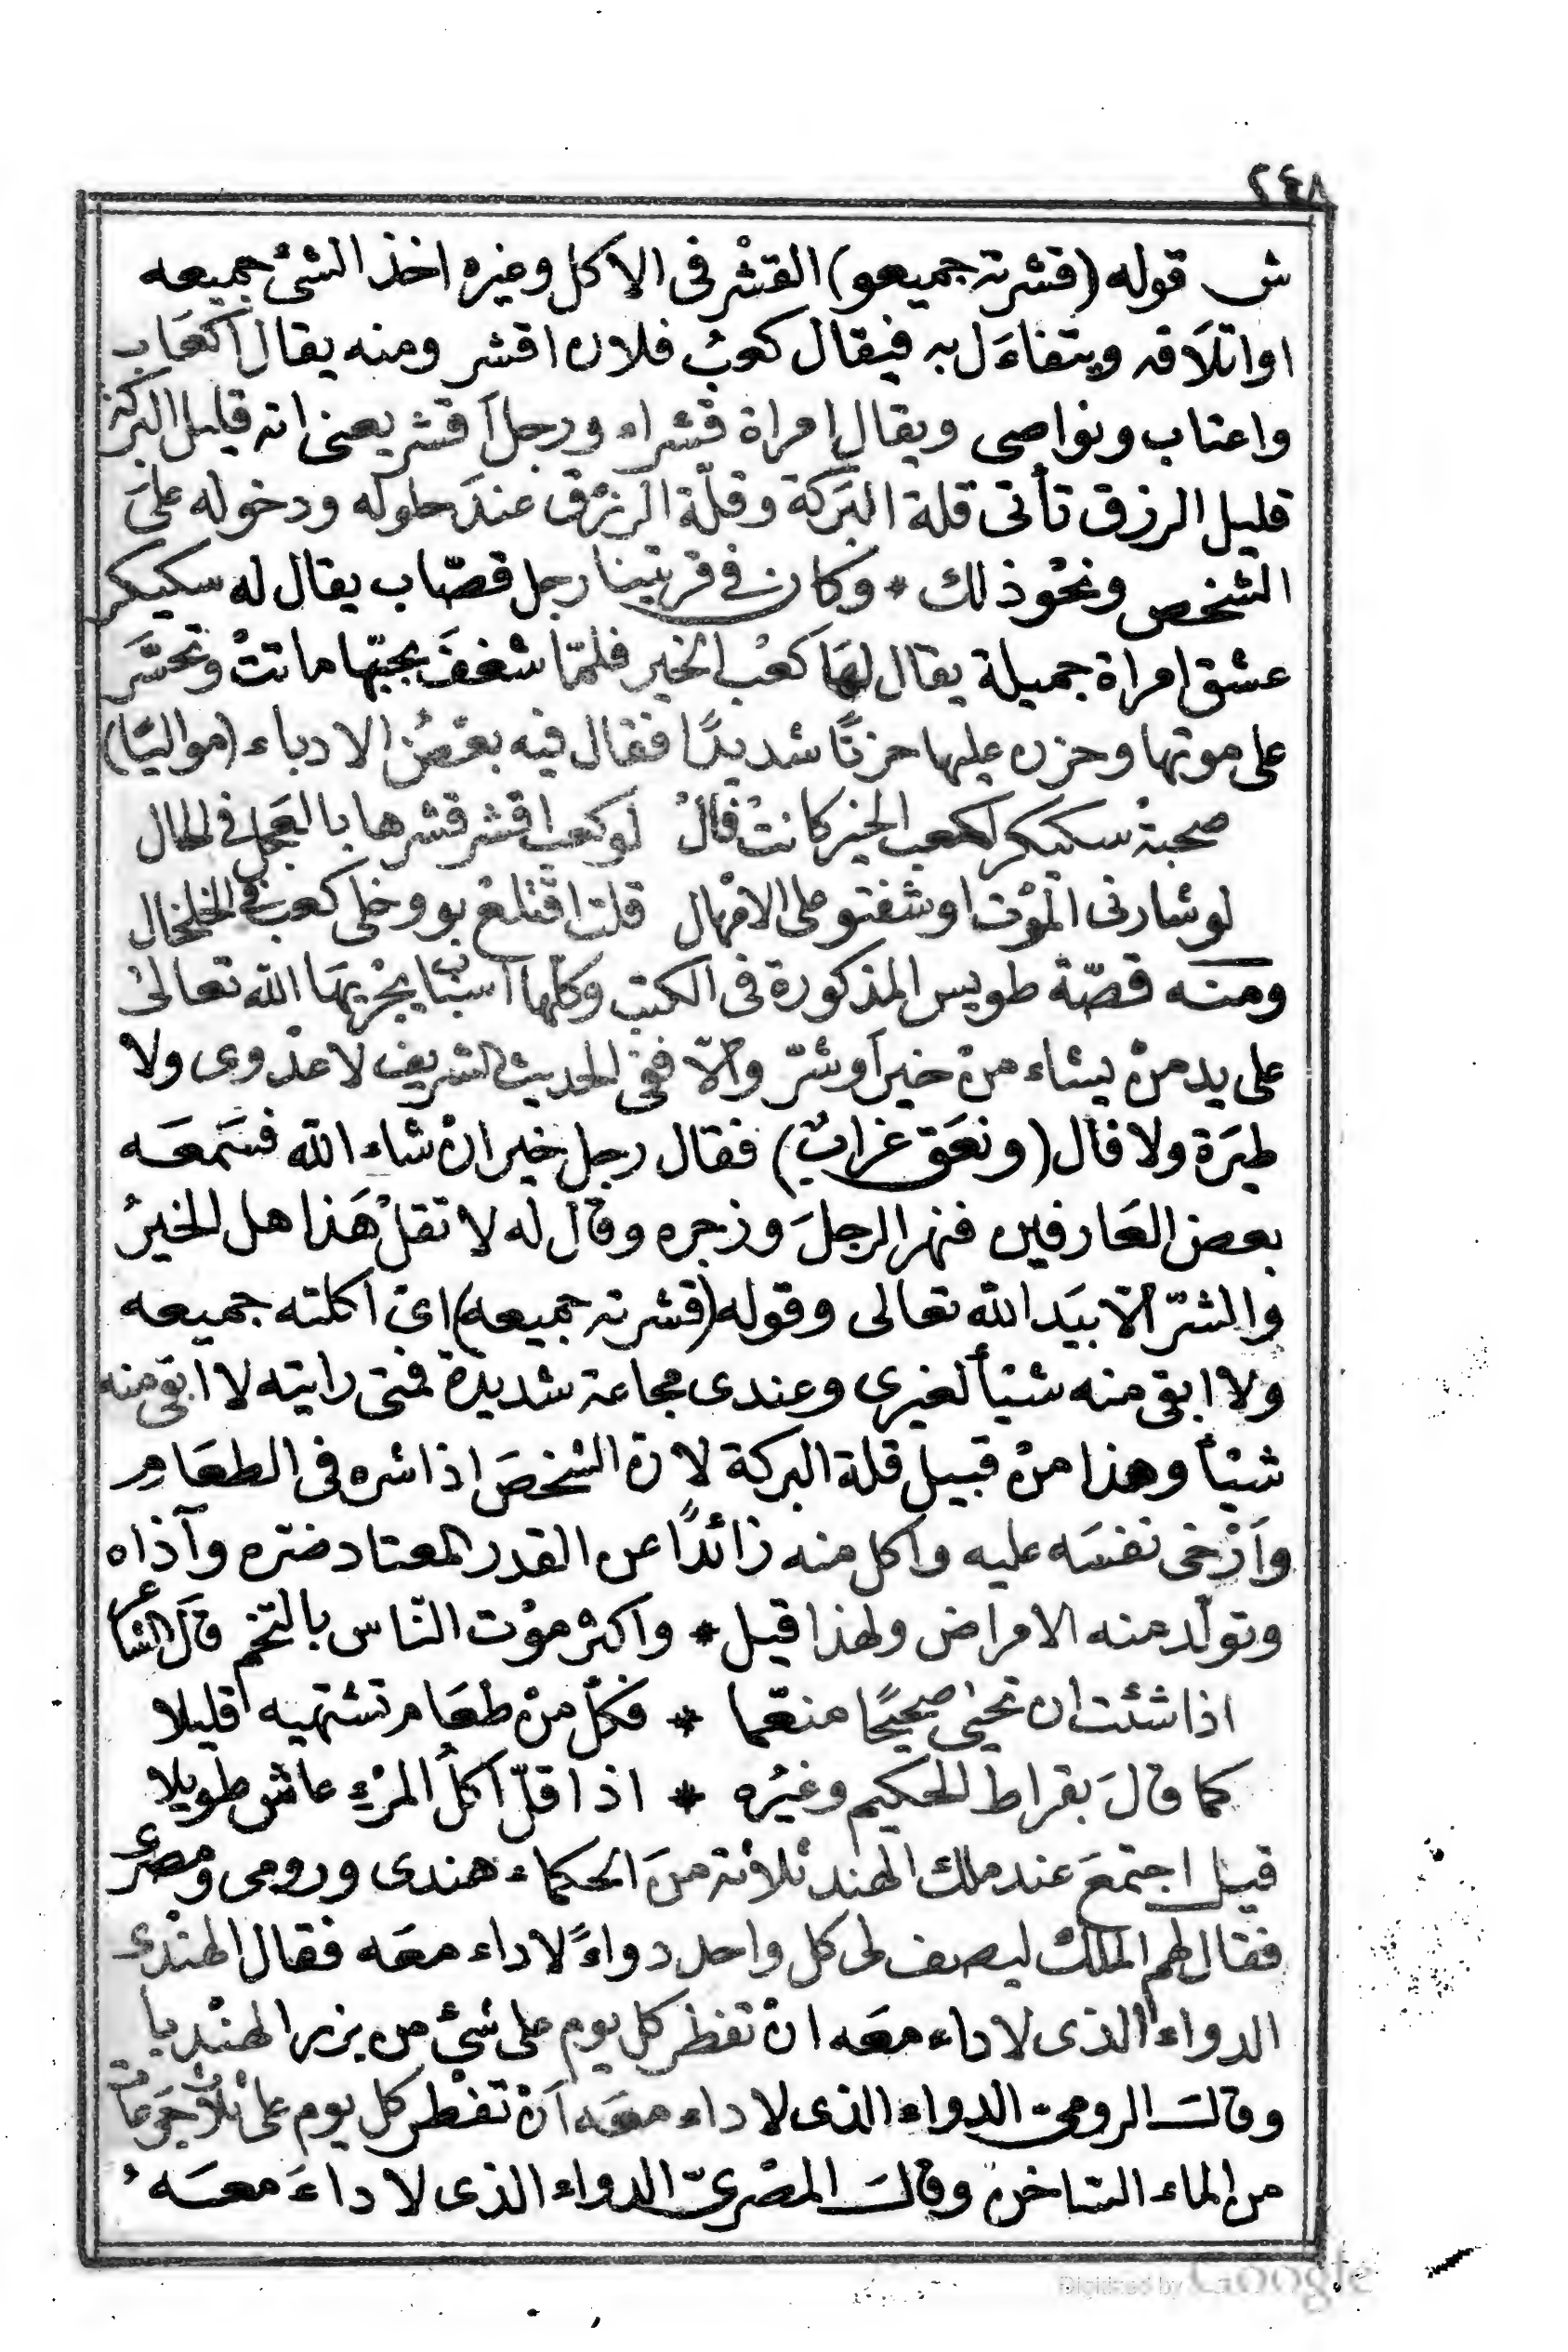 ٢٤٨
ش قوله (قشرته جميعو) القشْر فى الاكل وغيره اخذ الشئ جميعه
او اتلاَفه ويتفاءَل به فيقال كعبُ فلان اقشر ومنه يقال اكعَاب
واعتاب ونواصى ويقال امراة قشراء ورجل اَقشر يعنى انه قليل البركة
قليل الرزق تأتى قلة البَركة وقلّة الرزق عندَ حلوله ودخوله علىَ
الشخص ونحْو ذلك * وكان فى قريتنا رجل قصّاب يقال له سكيكر
عشق امراة جميلة يقال لهَا كعْب الخير فلمّا شغفَ بحبّها ماتتْ وتحسَّر
على موتها وحزن عليها حزنًا شديدًا فقال فيه بعْضُ الادباء (مواليًا)
صحبة سكيكر لكعب الخير كانتْ فالْ لو كعب اقشر قشرها بالعجل فى الحال
لو شارنى الموْت او شفتو على الامْهال قلت اقْتلعْ بو وخلى كعب فى الخلخال
ومنه قصّة طويس المذكورة فى الكتب وكلها اَسبَابٌ يجْريهَا الله تعالىْ
على يد منْ يشاء منْ خير اَوشرّ واِلاّ ففى الحديث الشريف لا عدْوى ولا
طيَرة ولا فال (ونعَق غرابٌ) فقال رجل خير انْ شاء الله فسَمعَه
بعض العَارفين فنهر الرجلَ وزجره وقال له لا تقلْ هَذا هل الخيرُ
والشرّ اِلاّ بيَد الله تعالى وقوله (قشرته جميعه) اىْ اكلته جميعه
ولا ابقى منه شيْأ لغيرى وعندى مجاعة شديدة فمتى رايته لا ابقى منه
شيْأ وهذا منْ قبيل قلة البركة لانّ الشخصَ اذا شره فى الطعَام
واَرْخى نفسَه عليه واكل منه زائدًا عن القدر المعتاد ضرّه وآذاه
وتولّد منه الامراض ولهذا قيل * واكثرْ موْت النّاس بالتخم قالَ الشاعر
اذا شئت ان تحيَى صحيحًا منعّما * فكلْ منْ طعَام تشتهيه قليلا
كما قالَ بقراط الحكيم وغيْره * اذا قلّ اَكلُ المرْءِ عاش طويلا
قيل اجتمعَ عند ملك الهند ثلاثة منَ الحكماء هندى ورومى ومصرى
فقال لهم الملكُ ليصف لى كل واحد دواءً لا داء معَه فقال الهنْدى
الدواءُ الذى لا داء معَه انْ تفطر كل يوم على شئ من بزر الهنْدبا
وقالَ الرومىّ الدواء الذى لا داء معَه اَنْ تفطر كل يوم على ثلاَث جرَعَات
من الماء السّاخن وقالَ المصْرىّ الدواء الذى لا داءَ معَه
Digitized by Google